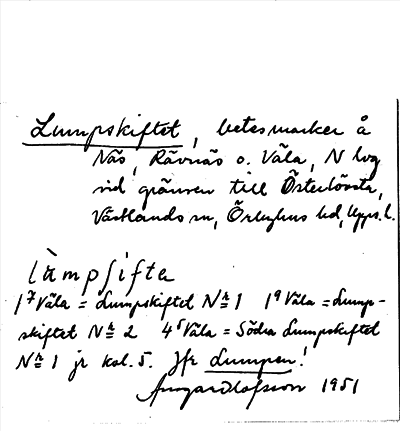 Lumpskiftet, betesmarker å
Näs, Rävnäs o. Väla, N
vid gränsen till Österlövsta,
Västlands sn, Örbyhus hd, Upps. l.
làmpsifta
1⁷ Väla = Lumpskiftet Nr 1 1⁹ Väla = Lump-
skiftet Nr 2 4⁵ Väla = Södra Lumpskiftet
Nr 1 jr kol. 5. Jfr Lumpen!
Olofsson 1951